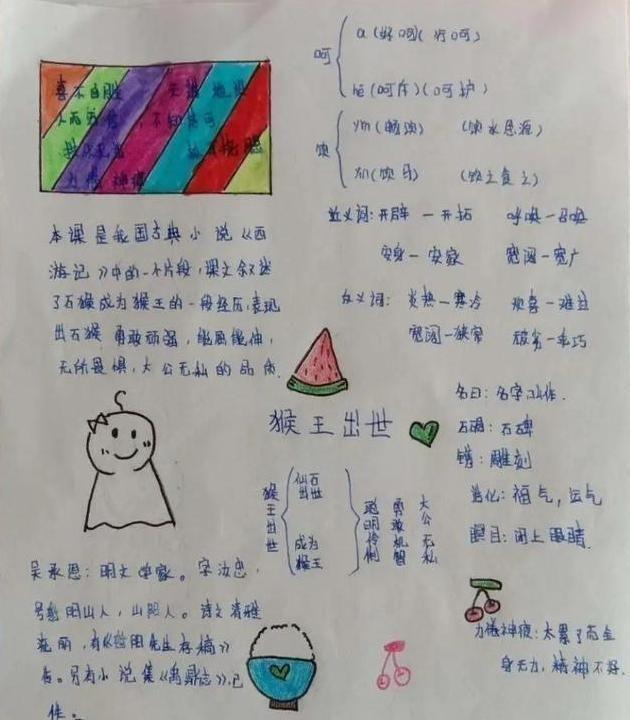 喜不自胜
力倦神疲
本课是我国古典小说《西
游记》中的一个片段，课文叙述
了石猴成为猴王的一段经历，表现
出石猴勇敢顽强，
无所畏惧，大公无私的品质.
呵
a(好呵)(行呵)
he(呵斥)(呵护)
饮
yin(畅饮) (饮水思源)
yin(饮马) (饮之食之)
近义词:开辟一开拓 呼唤一召唤
安身一安家 宽阔一宽广
反义词: 炎热一寒冷 欢喜一难过
宽阔一狭窄 顽劣一乖巧
猴王出世
名曰: 名字叫作.
石碣: 石碑
镌: 雕刻
造化: 福气，运气
瞑目: 闭上眼睛.
猴王出世
仙石
出世
成为
猴王
聪明伶俐
勇敢机智
大公无私
力倦神疲: 太累了而全
身无力，精神不好.
吴承恩: 明文学家。字汝忠，
号射阳山人，山阳人。诗文清雅
流丽，有《射阳先生存稿》
传。另有小说集《禹鼎志》,已
佚。